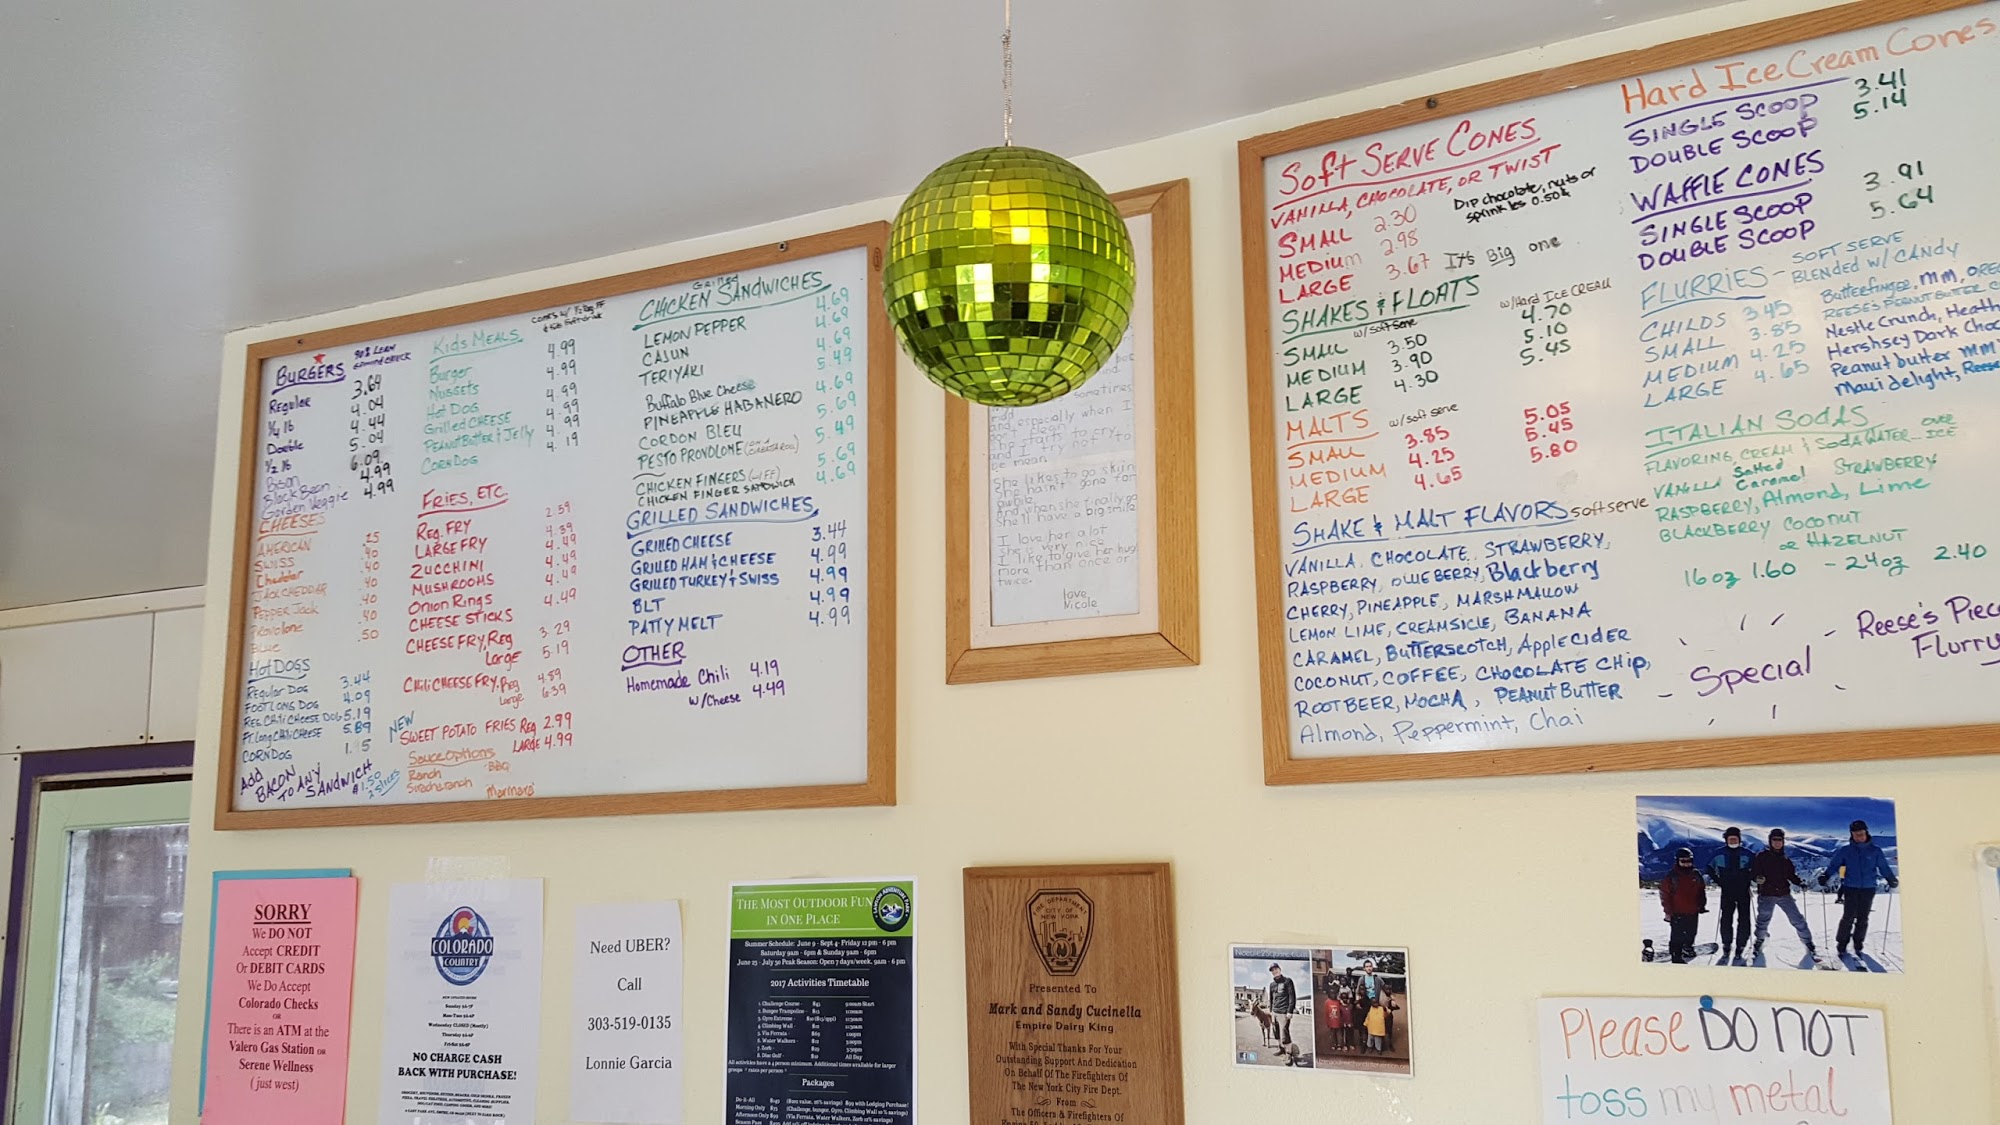 BURGERS 90% LEAN
Regular 3.69
1/4 lb 4.04
Double 4.44
1/2 lb 5.04
Bison 6.09
Black Bean 4.99
Garden Veggie 4.99
CHEESES
AMERICAN .25
SWISS .40
Cheddar .40
JACK CHEDDAR .40
PEPPER Jack .40
Provolone .40
Blue .50
Hot DOGS
REGULAR DOG 3.44
FOOT LONG DOG 4.09
REG CHILI CHEESE DOG 5.19
Ft. Long Chili CHEESE 5.89
CORN DOG
Add BACON
TO ANY SANDWICH
$1.50 2 Slices
Kids MEALS
Burger 4.99
Nuggets 4.99
Hot DOG 4.99
Grilled CHEESE 4.99
PEANUT BUTTER & Jelly 4.99
CORN DOG 4.19
FRIES, ETC
REG. FRY 2.59
LARGE FRY 4.39
ZUCCHINI 4.49
MUSHROOMS 4.49
ONION RINGS 4.49
CHEESE STICKS 4.49
CHEESE FRY, Reg 3.29
Large 5.19
CHILI CHEESE FRY, Reg 4.89
Large 6.39
NEW SWEET POTATO FRIES Reg 2.99
LARGE 4.99
Sauce Options
Ranch BBQ
Siracha ranch Marinara
Grilled
CHICKEN SANDWICHES
LEMON PEPPER 4.69
CAJUN 4.69
TERIYAKI 4.69
Buffalo Blue Cheese 5.49
PINEAPPLE HABANERO 4.69
CORDON BLEU 5.69
PESTO PROVOLONE 5.49
CHICKEN FINGERS 5.69
CHICKEN FINGER SANDWICH 4.69
GRILLED SANDWICHES
GRILLED CHEESE 3.44
GRILLED HAM & CHEESE 4.99
GRILLED TURKEY & SWISS 4.99
BLT 4.99
PATTY MELT 4.99
OTHER
Homemade Chili 4.19
w/Cheese 4.49
sometimes
and especially when I
lip starts to cry
and I try not to
be mean.
She likes to go skiing
She hasn't gone for
awhile
and when she finally go
She'll have a big smile
I love her a lot
she is very nice
I like to give her hugs
more than once or
twice.
love,
Nicole
Soft SERVE CONES
VANILLA, CHOCOLATE, OR TWIST
SMALL 2.30
MEDIUM 2.98
LARGE 3.67 It's Big one
Dip chocolate, nuts or
sprinkles 0.50¢
SHAKES & FLOATS
w/soft serve w/Hard ICE CREAM
SMALL 3.50 4.70
MEDIUM 3.90 5.10
LARGE 4.30 5.45
MALTS w/soft serve
SMALL 3.85 5.05
MEDIUM 4.25 5.45
LARGE 4.65 5.80
SHAKE & MALT FLAVORS soft serve
VANILLA, CHOCOLATE, STRAWBERRY,
RASPBERRY, BLUEBERRY, Blackberry
CHERRY, PINEAPPLE, MARSHMALLOW
LEMON LIME, CREAMSICLE, BANANA
CARAMEL, BUTTERSCOTCH, Apple CIDER
COCONUT, COFFEE, CHOCOLATE CHIP,
ROOT BEER, MOCHA, PEANUT BUTTER
Almond, Peppermint, Chai
Hard Ice Cream Cones
SINGLE SCOOP 3.41
DOUBLE SCOOP 5.14
WAFFLE CONES
SINGLE SCOOP 3.91
DOUBLE SCOOP 5.64
FLURRIES - SOFT SERVE
BLENDED W/ CANDY
CHILDS 3.45
SMALL 3.85
MEDIUM 4.25
LARGE 4.65
Butterfinger, MM, OREO
REESE'S PEANUT BUTTER C
Nestle Crunch, Heath
Hershey Dark Choc
Peanut butter MM
Maui delight, Reese
ITALIAN SODAS
FLAVORING, CREAM & SODA WATER... OVER ICE
VANILLA Salted Caramel STRAWBERRY
RASPBERRY, Almond, Lime
BLACKBERRY COCONUT
or HAZELNUT
16oz 1.60 - 24oz 2.40
Special
Reese's Piece
Flurry
SORRY
We DO NOT
Accept CREDIT
Or DEBIT CARDS
We Do Accept
Colorado Checks
OR
There is an ATM at the
Valero Gas Station OR
Serene Wellness
( just west)
COLORADO
COUNTRY
NO CHARGE CASH
BACK WITH PURCHASE!
Need UBER?
Call
303-519-0135
Lonnie Garcia
THE MOST OUTDOOR FUN
IN ONE PLACE
Summer Schedule: June 9 - Sept 4- Friday 12 pm - 6 pm
Saturday 9am - 6pm & Sunday 9am - 6pm
June 23 - July 30 Peak Season: Open 7 days/week, 9am - 6 pm
2017 Activities Timetable
Packages
FIRE DEPARTMENT
CITY OF
NEW YORK
Presented To
Mark and Sandy Cucinella
Empire Dairy King
With Special Thanks For Your
Outstanding Support And Dedication
On Behalf Of The Firefighters Of
The New York City Fire Dept.
From
The Officers & Firefighters Of
Please DO NOT
toss my metal